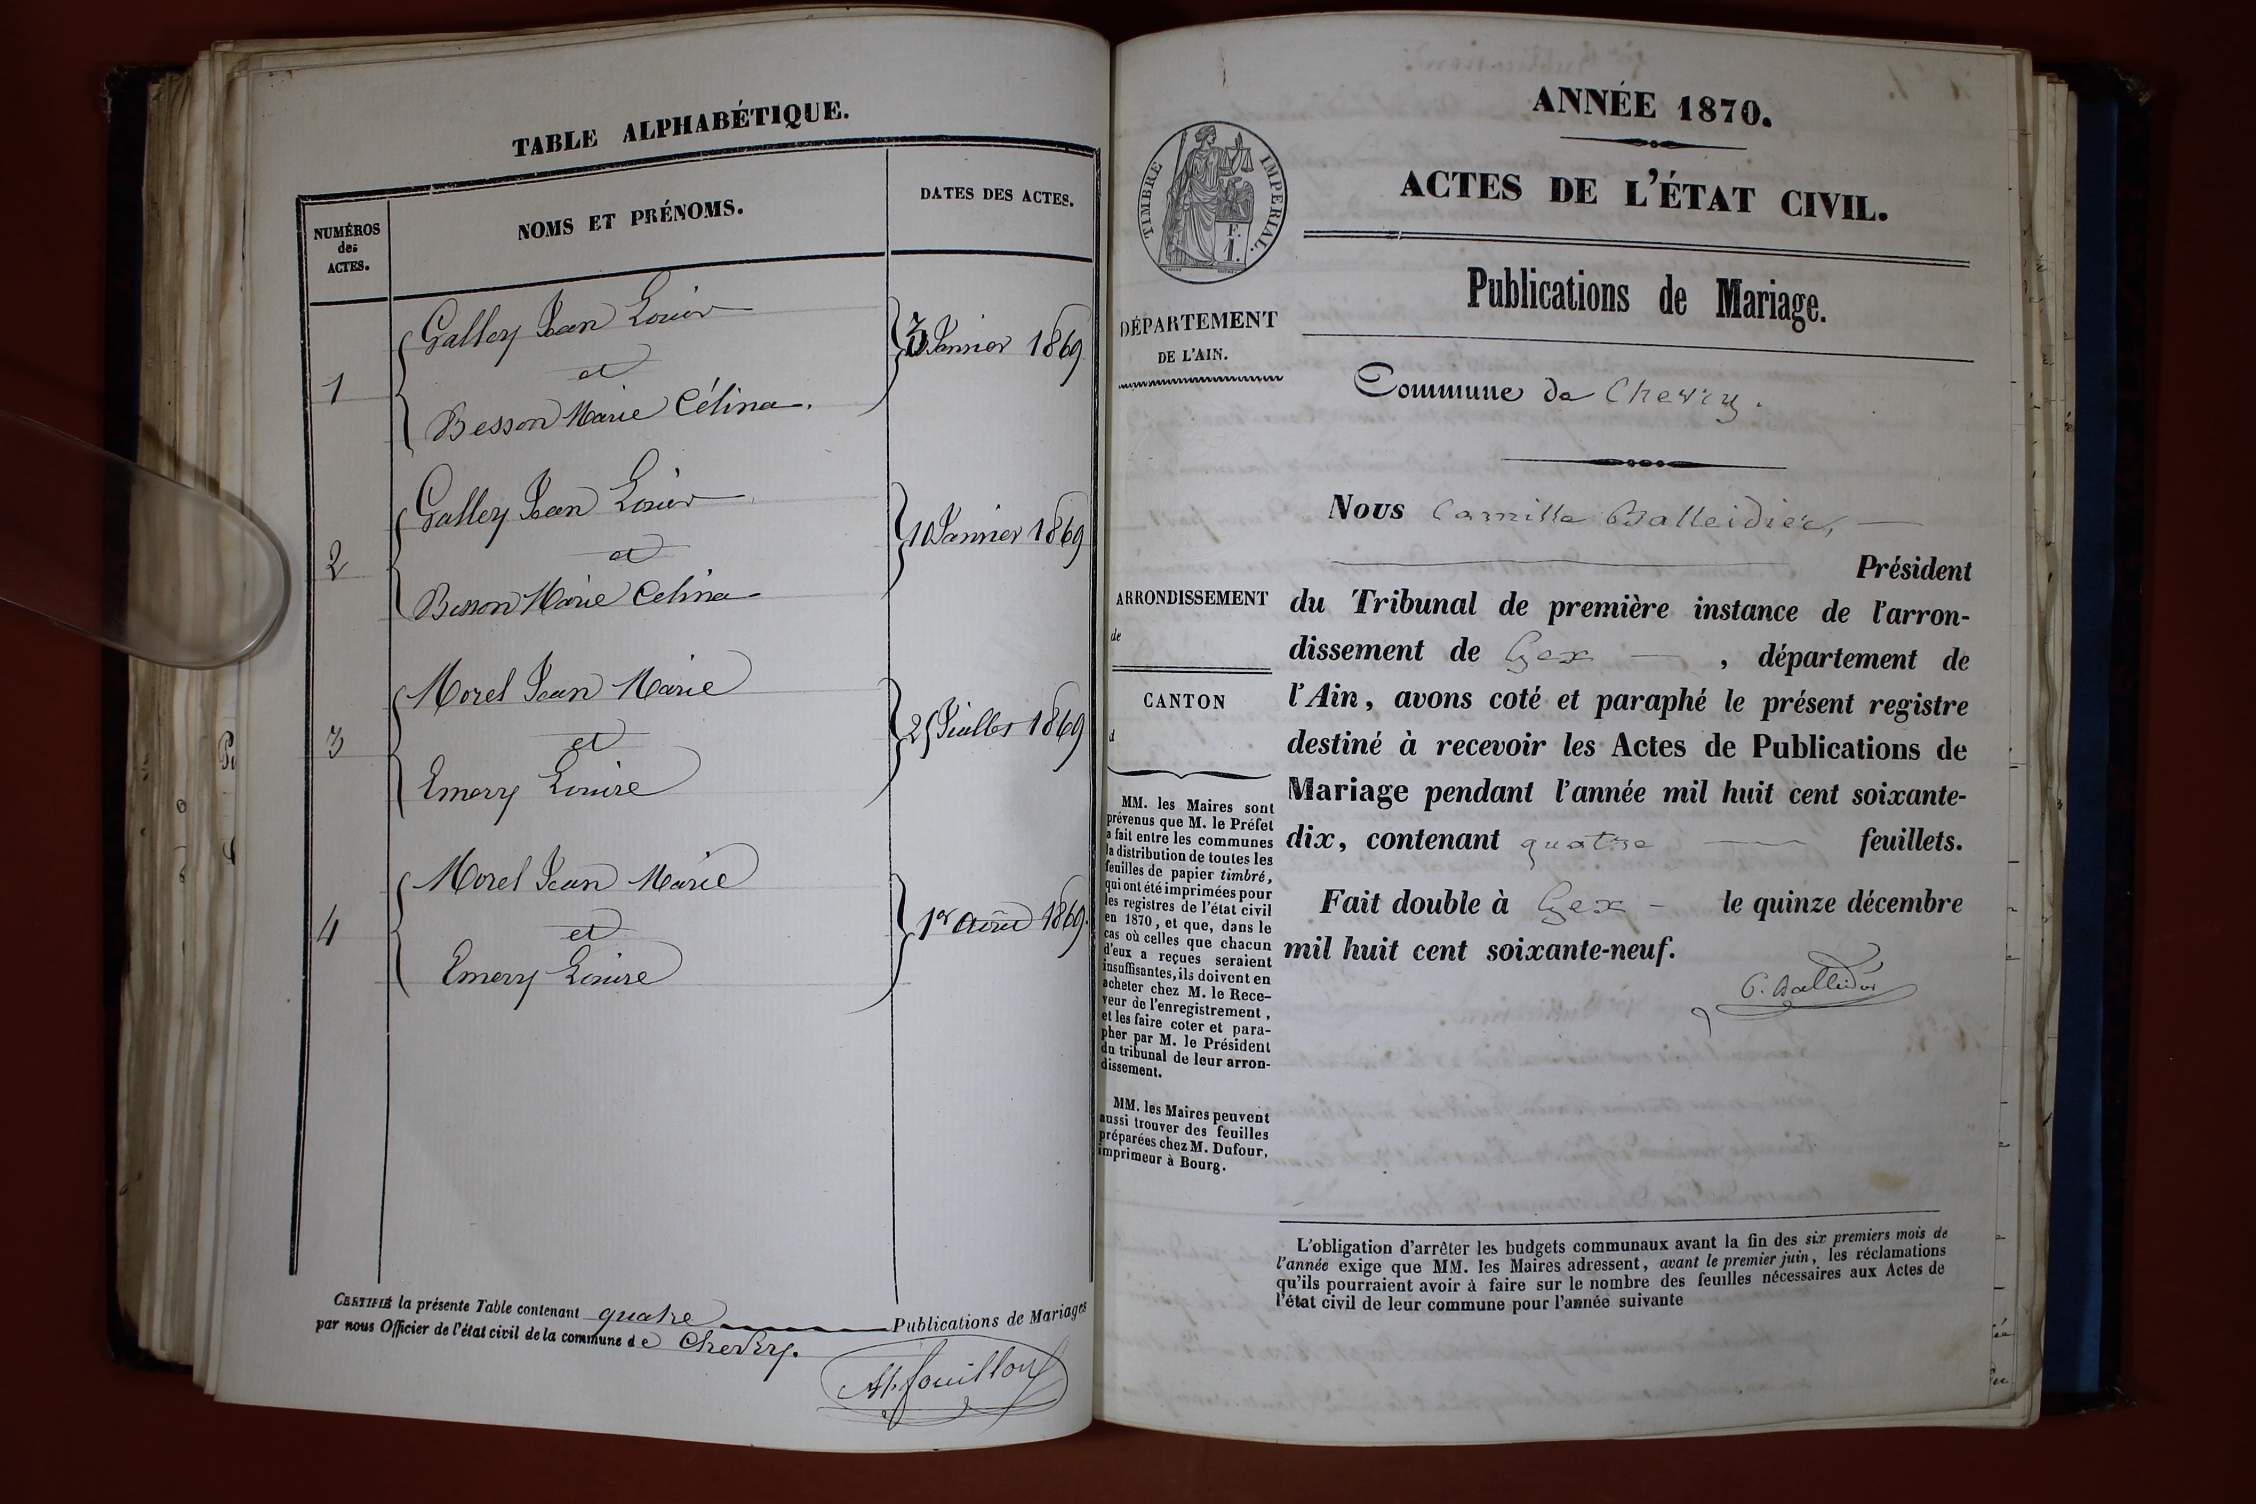 TABLE ALPHABÉTIQUE.
NUMÉROS
des
ACTES.
NOMS ET PRÉNOMS.
DATES DES ACTES.
1
Galley Jean Louis
et
Besson Marie Célina.
3 Janvier 1869
2
Galley Jean Louis
et
Besson Marie Celina
10 Janvier 1869
3
Morel Jean Marie
et
Emery Louise
25 Juillet 1869
4
Morel Jean Marie
et
Emery Louise
1er Août 1869.
CERTIFIÉ la présente Table contenant quatre Publications de Mariages
par nous Officier de l'état civil de la commune de Chevry.
ANNÉE 1870.
ACTES DE L'ÉTAT CIVIL.
Publications de Mariage.
TIMBRE IMPERIAL.
F.
1.
DÉPARTEMENT
DE L'AIN.
Commune de Chevry.
Nous Camille Balleidier,
Président
du Tribunal de première instance de l'arron-
dissement de Gex , département de
l'Ain, avons coté et paraphé le présent registre
destiné à recevoir les Actes de Publications de
Mariage pendant l'année mil huit cent soixante-
dix, contenant quatre feuillets.
Fait double à Gex le quinze décembre
mil huit cent soixante-neuf.
C. Balleidier
ARRONDISSEMENT
de
CANTON
d
MM. les Maires sont
prévenus que M. le Préfet
a fait entre les communes
la distribution de toutes les
feuilles de papier timbré,
qui ont été imprimées pour
les registres de l'état civil
en 1870, et que, dans le
cas où celles que chacun
d'eux a reçues seraient
insuffisantes, ils doivent en
acheter chez M. le Rece-
veur de l'enregistrement,
et les faire coter et para-
pher par M. le Président
du tribunal de leur arron-
dissement.
MM. les Maires peuvent
aussi trouver des feuilles
préparées chez M. Dufour,
imprimeur à Bourg.
L'obligation d'arrêter les budgets communaux avant la fin des six premiers mois de
l'année exige que MM. les Maires adressent, avant le premier juin, les réclamations
qu'ils pourraient avoir à faire sur le nombre des feuilles nécessaires aux Actes de
l'état civil de leur commune pour l'année suivante